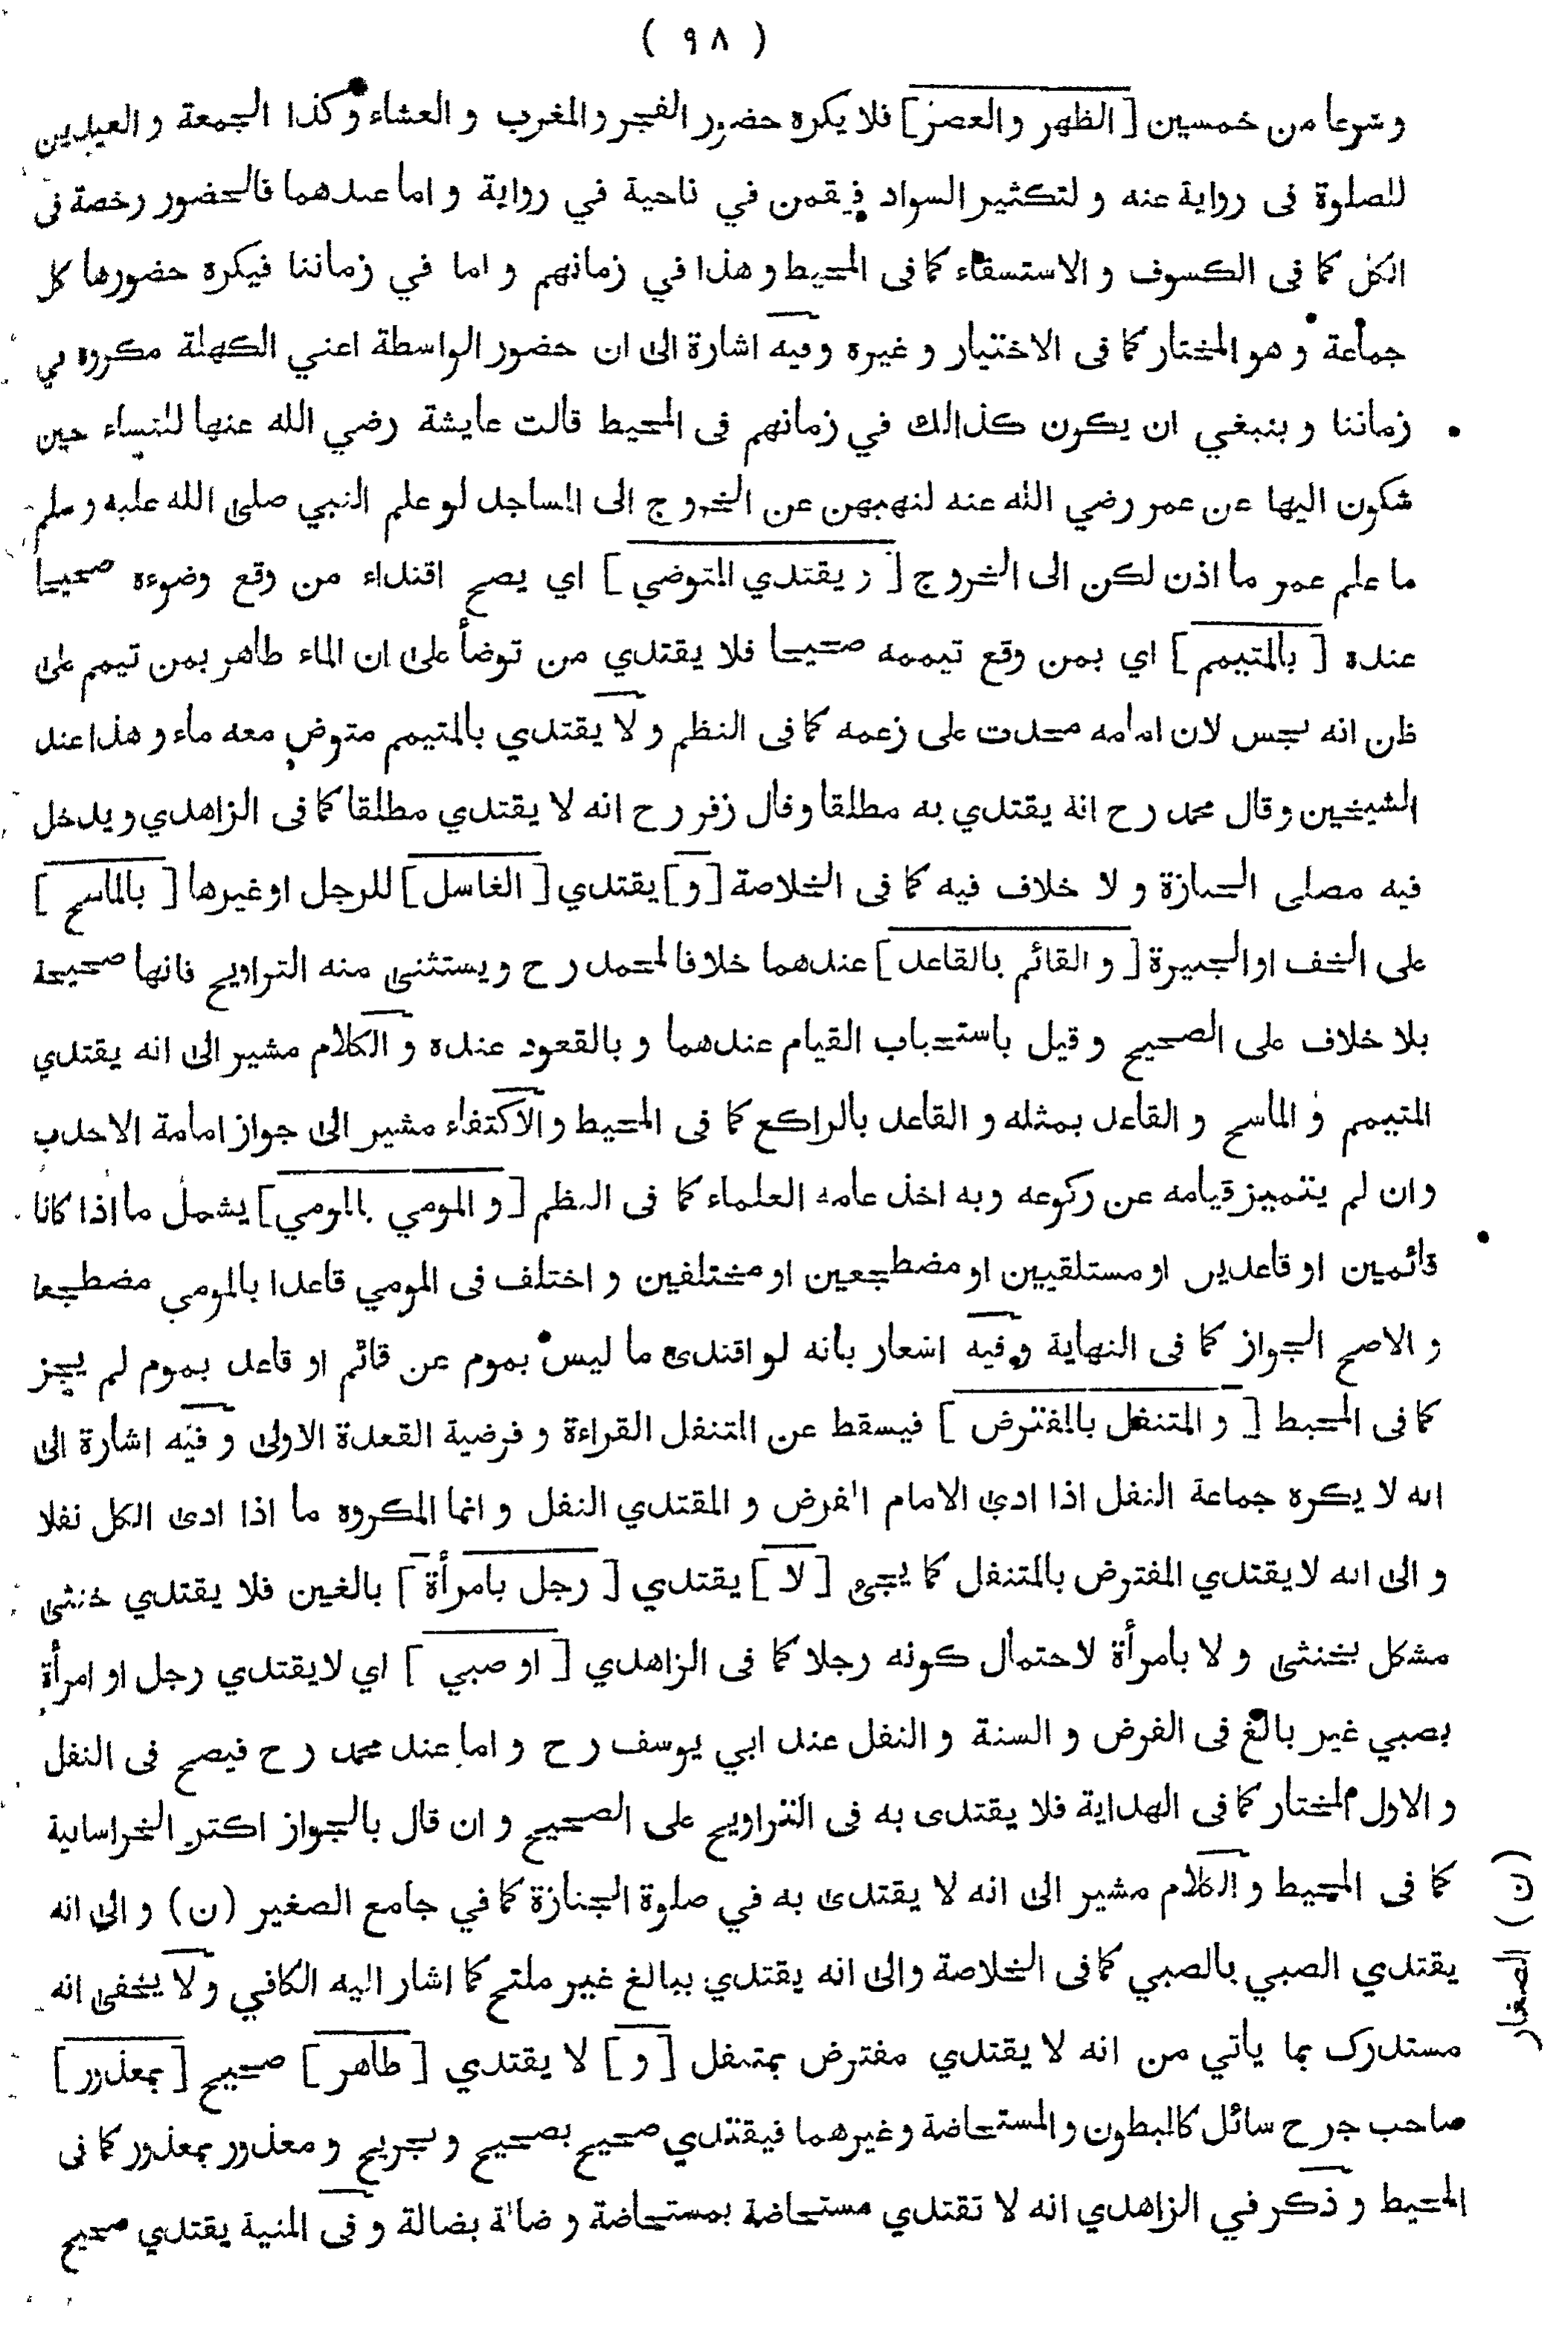 ( ٩٨ )
و شرعا من خمسين [ الظهر و العصر ] فلا يكره حضور الفجر و المغرب و العشاء و كذا الجمعة و العيدين
للصلوة فى رواية عنه و لتكثير السواد فيقمن في ناحية في رواية و اما عندهما فالحضور رخصة فى
الكل كما فى الكسوف و الاستسقاء كما فى المحيط و هذا في زمانهم و اما في زماننا فيكره حضورها كل
جماعة و هو المختار كما فى الاختيار و غيره و فيه اشارة الى ان حضور الواسطة اعني الكهلة مكروه في
زماننا و ينبغي ان يكون كذالك في زمانهم فى المحيط قالت عايشة رضي الله عنها للنساء حين
شكون اليها عن عمر رضي الله عنه لنهيهن عن الخروج الى المساجد لو علم النبي صلى الله عليه و سلم
ما علم عمر ما اذن لكن الى الخروج [ و يقتدي المتوضي ] اي يصح اقتداء من وقع وضوءه صحيحا
عنده [ بالمتيمم ] اي بمن وقع تيممه صحيحا فلا يقتدي من توضأ على ان الماء طاهر بمن تيمم على
ظن انه نجس لان امامه محدث على زعمه كما فى النظم و لا يقتدي بالمتيمم متوض معه ماء و هذا عند
الشيخين و قال محمد رح انه يقتدي به مطلقا و قال زفر رح انه لا يقتدي مطلقا كما فى الزاهدي و يدخل
فيه مصلى الجنازة و لا خلاف فيه كما فى الخلاصة [ و ] يقتدي [ الغاسل ] للرجل او غيرها [ بالماسح ]
على الخف او الجبيرة [ و القائم بالقاعد ] عندهما خلافا لمحمد رح و يستثنى منه التراويح فانها صحيحة
بلا خلاف على الصحيح و قيل باستحباب القيام عندهما و بالقعود عنده و الكلام مشير الى انه يقتدي
المتيمم و الماسح و القاعد بمثله و القاعد بالراكع كما فى المحيط و الاكتفاء مشير الى جواز امامة الاحدب
و ان لم يتميز قيامه عن ركوعه و به اخذ عامه العلماء كما فى النظم [ و المومي بالمومي ] يشمل ما اذا كانا
قائمين او قاعدين او مستلقيين او مضطجعين او مختلفين و اختلف فى المومي قاعدا بالمومي مضطجعا
و الاصح الجواز كما فى النهاية و فيه اشعار بانه لو اقتدى ما ليس بموم عن قائم او قاعد بموم لم يجز
كما فى المحيط [ و المتنفل بالمفترض ] فيسقط عن المتنفل القراءة و فرضية القعدة الاولى و فيه اشارة الى
انه لا يكره جماعة النفل اذا ادى الامام الفرض و المقتدي النفل و انما المكروه ما اذا ادى الكل نفلا
و الى انه لا يقتدي المفترض بالمتنفل كما يجئ [ لا ] يقتدي [ رجل بامرأة ] بالغين فلا يقتدي خنثى
مشكل بخنثى و لا بامرأة لاحتمال كونه رجلا كما فى الزاهدي [ او صبي ] اي لا يقتدي رجل او امرأة
بصبي غير بالغ فى الفرض و السنة و النفل عند ابي يوسف رح و اما عند محمد رح فيصح فى النفل
و الاول المختار كما فى الهداية فلا يقتدى به فى التراويح على الصحيح و ان قال بالجواز اكثر الخراسانية
كما فى المحيط و الكلام مشير الى انه لا يقتدى به في صلوة الجنازة كما في جامع الصغير (ن) و الى انه
يقتدي الصبي بالصبي كما فى الخلاصة والى انه يقتدي ببالغ غير ملتح كما اشار اليه الكافي و لا يخفى انه
مستدرك بما يأتي من انه لا يقتدي مفترض بمتنفل [ و ] لا يقتدي [ طاهر ] صحيح [ بمعذور ]
صاحب جرح سائل كالمبطون و المستحاضة و غيرهما فيقتدي صحيح بصحيح و جريح و معذور بمعذور كما فى
المحيط و ذكر في الزاهدي انه لا تقتدي مستحاضة بمستحاضة و ضالة بضالة و فى المنية يقتدي صحيح
(ن) الصغار